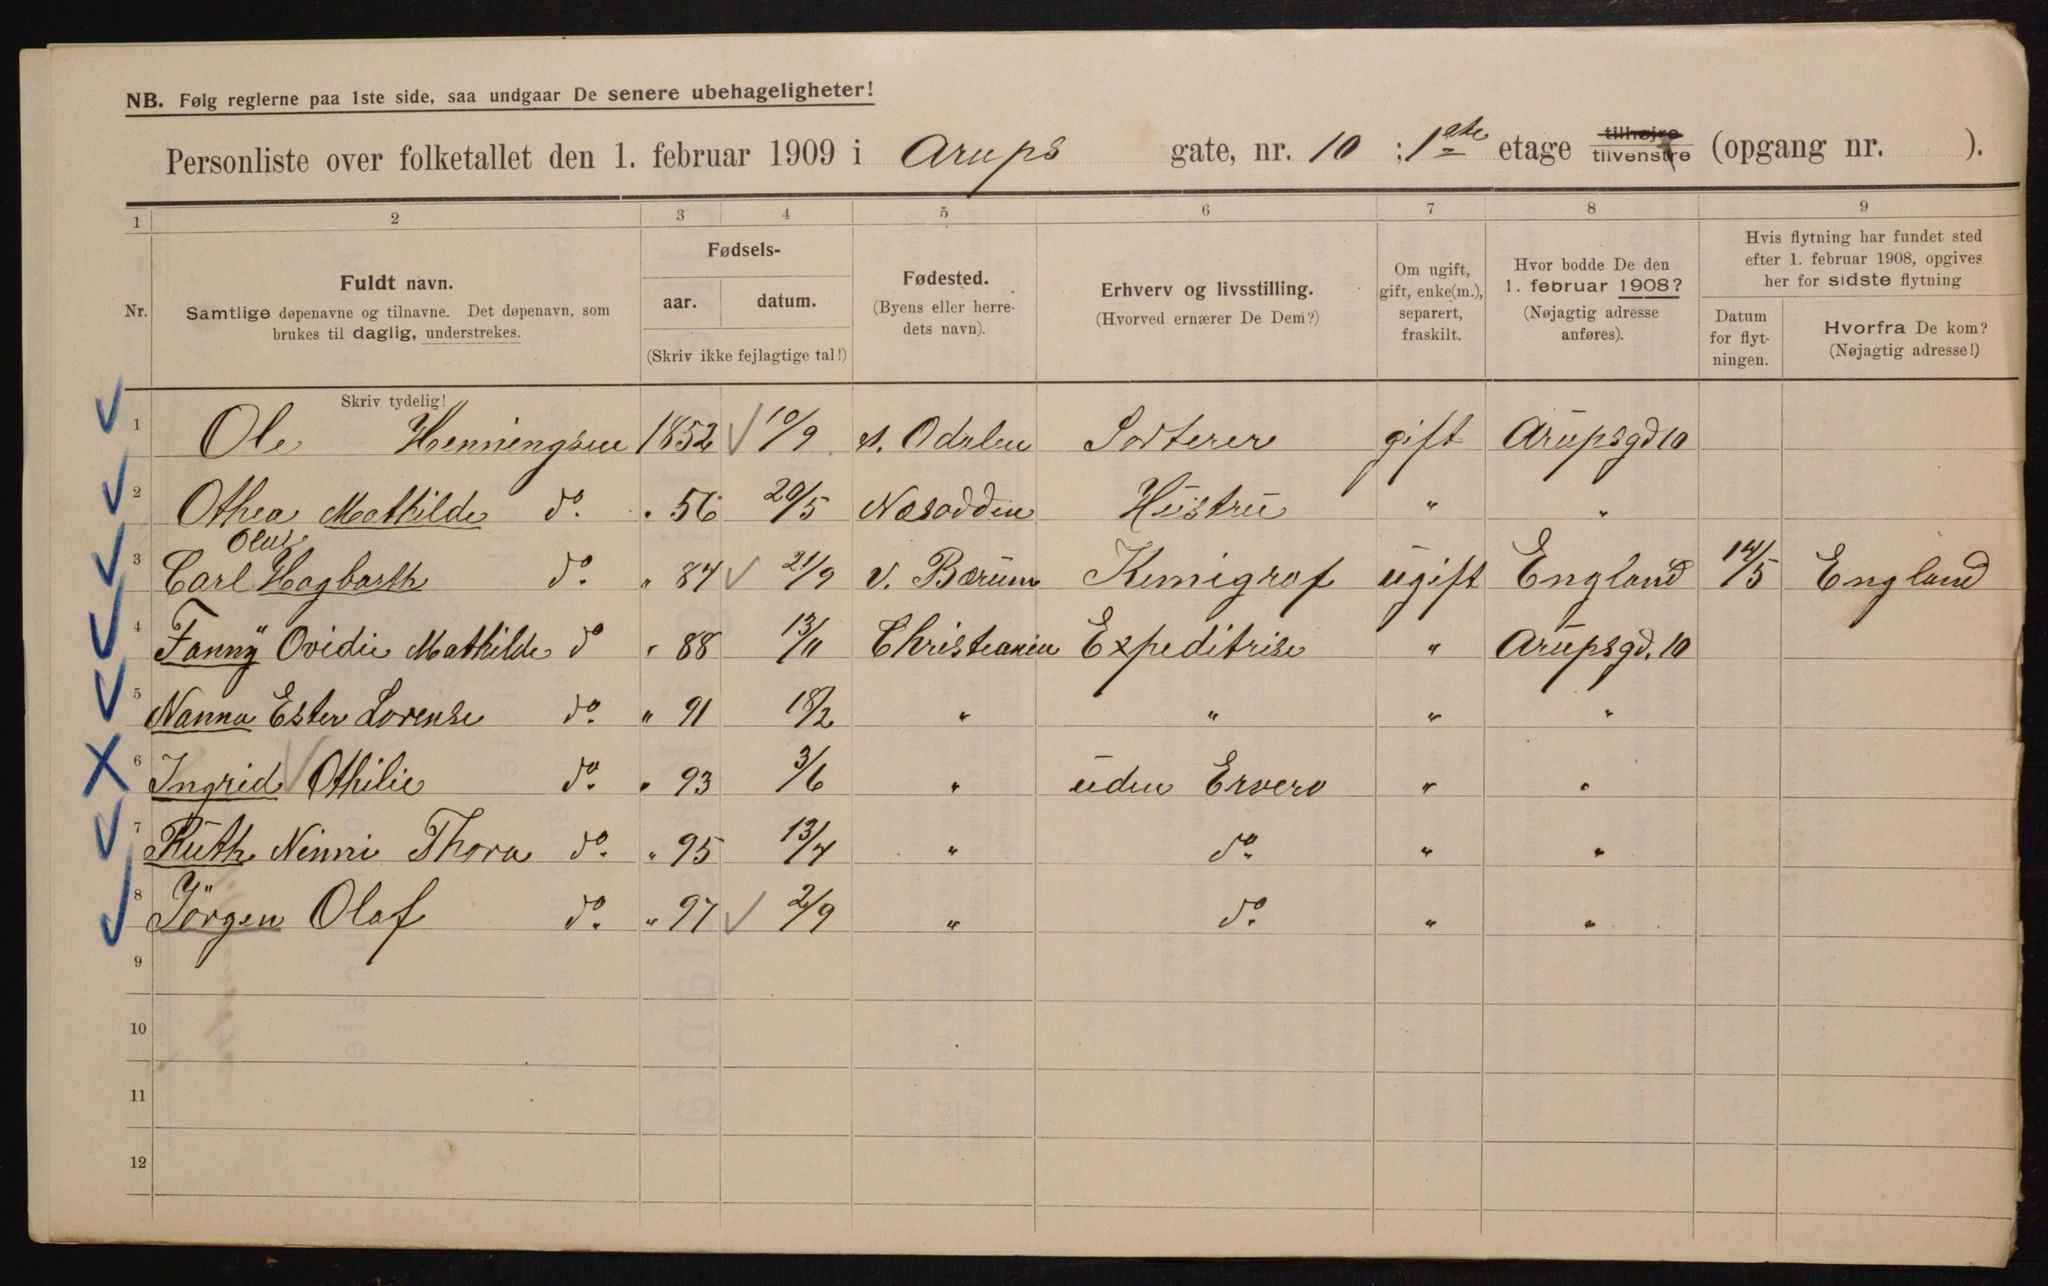 NB. Følg reglerne paa 1ste side, saa undgaar De senere ubehageligheter!
Personliste over folketallet den 1. februar 1909 i Arups gate, nr. 10 ; 1ste etage tilhøjre tilvenstre (opgang nr. ).
1 2 3 4 5 6 7 8 9
Nr.
Fuldt navn.
Samtlige døpenavne og tilnavne. Det døpenavn, som
brukes til daglig, understrekes.
Skriv tydelig!
Fødsels-
aar. datum.
(Skriv ikke fejlagtige tal!)
Fødested.
(Byens eller herre-
dets navn).
Erhverv og livsstilling.
(Hvorved ernærer De Dem?)
Om ugift,
gift, enke(m.),
separert,
fraskilt.
Hvor bodde De den
1. februar 1908?
(Nøjagtig adresse
anføres).
Hvis flytning har fundet sted
efter 1. februar 1908, opgives
her for sidste flytning
Datum
for flyt-
ningen.
Hvorfra De kom?
(Nøjagtig adresse!)
1 Ole Henningsen 1852 10/9 Odalen Sorterer gift Arupsgd 10
2 Othea Mathilde do. " 56 20/5 Nesodden Hustru " "
Olus
3 Carl Hagbarth do. " 84 21/9 V. Bærum Kemigraf ugift England 14/5 England
4 Fanny Ovidie Mathilde do " 88 13/11 Christiania Expeditrise " Arupsgd. 10
5 Nanna Ester Lorense do. " 91 18/2 " " " "
6 Ingrid Othilie do. " 93 3/6 " uden Erverv " "
7 Ruth Ninni Thora do. " 95 13/4 " do. " "
8 Jörgen Olaf do. " 97 2/9 " do. " "
9
10
11
12